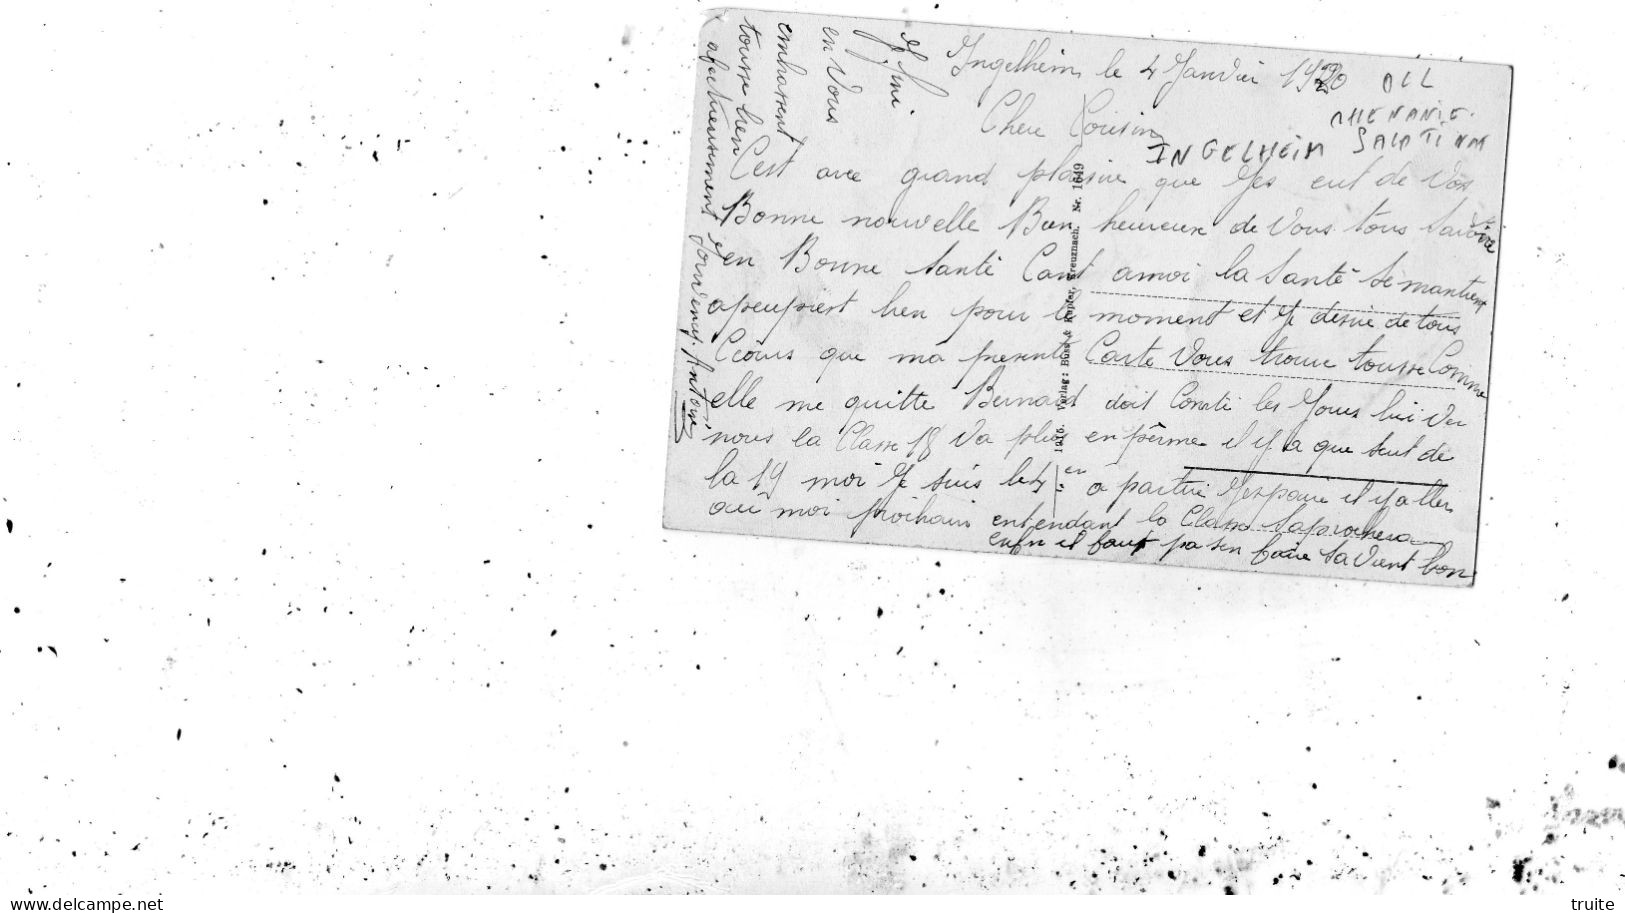 Ingelheim le 4 Janvier 1920
ALL
RHENANIE.
PALATINA
INGELHEIM
Chere Cousin
C'est avec grand plaisire que Jes eut de Vos
Bonne nouvelle Bien heureux de Vous tous Savoire
en Bonne Santé Cant amoi la Santé Se mantient
apeupriest bien pour le moment et Je desire de tous
Cœurs que ma presente Carte Vous trouve tousse Comme
elle me quitte Bernard doit Conté les Jours lui Ver
nous la Classe 18 Va plus en pérme il y a que seut de
la 19 moi Je suis le 4er a partire Jespaire il y aller
au moi prochain entendant la Classe Saprochera
enfin il faut pa sen faire Sa Vient bon
Je fini
en Vous
embrassent
tousse bien
afectueusement
Votre Antoine
1915. Verlag: Buss & Kupfer, Kreuznach. Nr. 1649
www.delcampe.net
truite